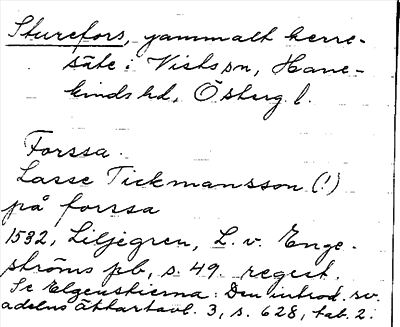 Sturefors, gammalt herre-
säte i Vists sn, Hane-
kinds hd, Österg l.
Forssa.
Lasse Tickmansson (!)
på forssa
1532, Liljegren, L. v. Enge-
ströms pb, s. 49. regist.
Se Elgenstierna: Den introd. sv.
adelns ättartavl. 3, s. 628, tab. 2.